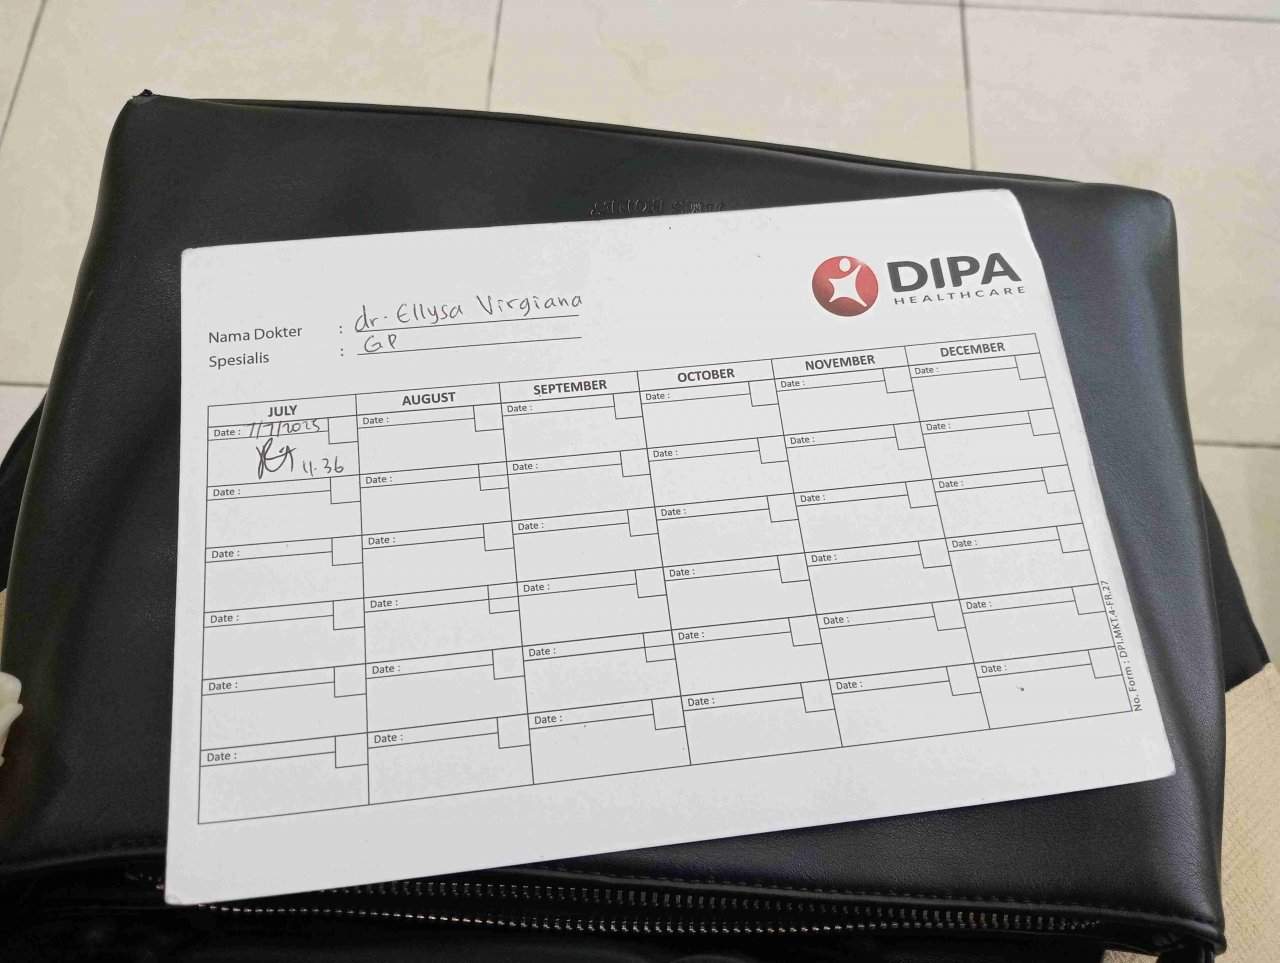 DIPA
HEALTHCARE
Nama Dokter : dr. Ellysa Virgiana
Spesialis : GP
JULY AUGUST SEPTEMBER OCTOBER NOVEMBER DECEMBER
Date : 7/7/2025 Date : Date : Date : Date : Date :
11.36
Date : Date : Date : Date : Date : Date :
Date : Date : Date : Date : Date : Date :
Date : Date : Date : Date : Date : Date :
Date : Date : Date : Date : Date : Date :
Date : Date : Date : Date : Date : Date :
No. Form : DPI.MKT.4-FR.27